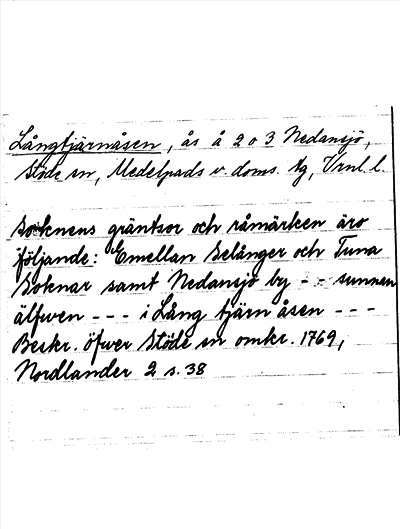 Långtjärnåsen, ås å 2 o 3 Nedansjö,
Stöde sn, Medelpads v. doms. tg, Vrnl. l.
Soknens gräntsor och råmärken äro
följande: Emellan Selånger och Tuna
Soknar samt Nedansjö by - - sunnan
älfwen - - - i Lång tjärn åsen - - -
Beskr. öfwer Stöde sn omkr. 1769,
Nordlander 2 s. 38